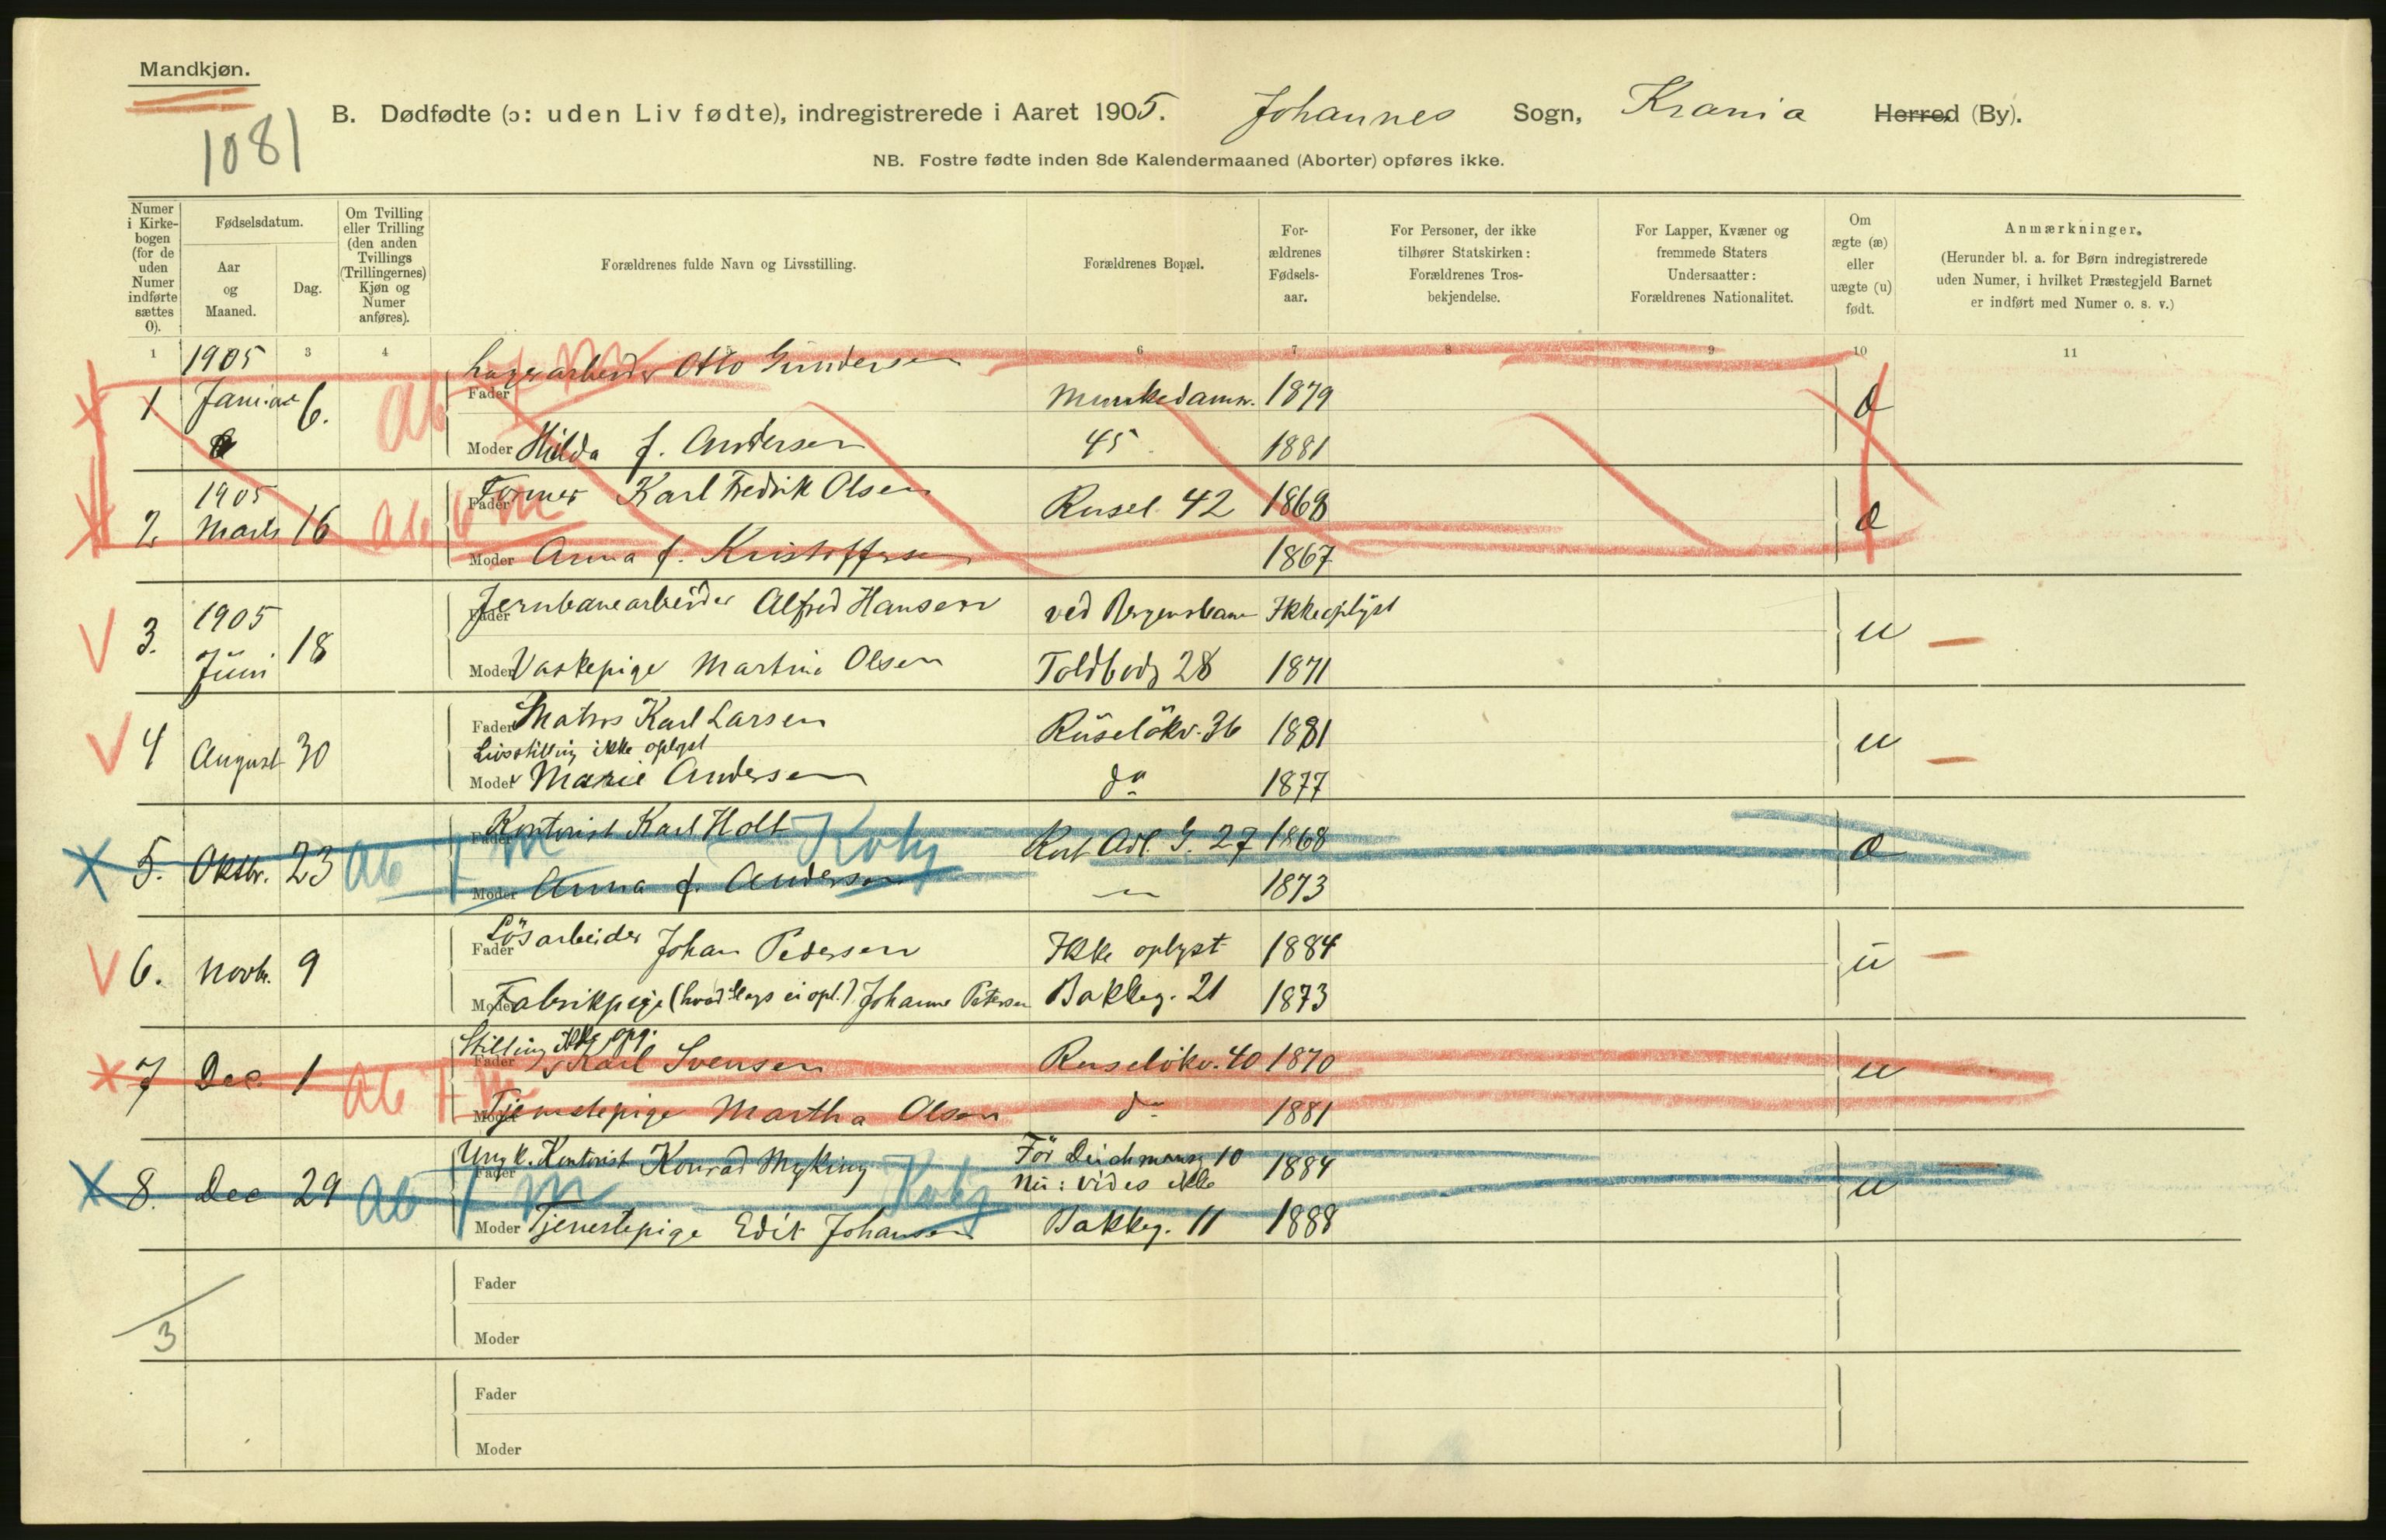 Mandkjøn.
1081
B. Dødfødte (ɔ: uden Liv fødte), indregistrerede i Aaret 1905. Johannes Sogn, Krania Herred (By).
NB. Fostre fødte inden 8de Kalendermaaned (Aborter) opføres ikke.
Numer i Kirke-bogen (for de uden Numer indførte sættes 0).
Fødselsdatum.
Aar og Maaned.
Dag.
Om Tvilling eller Trilling (den anden Tvillings (Trillingernes) Kjøn og Numer anføres).
Forældrenes fulde Navn og Livsstilling.
Forældrenes Bopæl.
For-ældrenes Fødsels-aar.
For Personer, der ikke tilhører Statskirken: Forældrenes Tros-bekjendelse.
For Lapper, Kvæner og fremmede Staters Undersaatter: Forældrenes Nationalitet.
Om ægte (æ) eller uægte (u) født.
Anmærkninger.
(Herunder bl. a. for Børn indregistrerede uden Numer, i hvilket Præstegjeld Barnet er indført med Numer o. s. v.)
1 3 4 5 6 7 8 9 10 11
1905
Lagerarbeider Otto Gundersen
1 Januar 6. Ab + m Fader Munkedamsv. 1879
Moder Hilda f. Andersen 45 1881
1905
Fader Former Karl Fredrik Olsen Rusel. 42 1868
2 Marts 16 Ab m
Moder Anna f. Kristoffersen 1867
1905
Fader Jernbanearbeider Alfred Hansen ved Bergensbane Ikke oplyst
3. Juni 18 u —
Moder Vaskepige Martine Olsen Toldbodg 28 1871
Fader Matros Karl Larsen Ruselökv. 36 1881
4 August 30 u —
Livsstilling ikke oplyst
Moder Marie Andersen do 1877
Fader Kontorist Karl Holt Karl Adl. G. 27 1868
5. Oktbr. 23 Ab + m
Moder Anna f. Andersen — 1873
Fader Lösarbeider Johan Pedersen Ikke oplyst 1884
6. Novbr. 9 u —
Moder Fabrikpige (hvad Slags ei opl.) Johanne Petersen Bakkeg. 21 1873
Stilling ikke opg.
Fader Karl Svensen Ruselökv. 40 1870
7 Dec. 1 Ab + m u
Moder Tjenestepige Martha Olsen do 1881
Fader Ungk. Kontorist Konrad Myking För Deichmansg 10 1884
Nu: vides ikke
8. Dec 29 Ab + m u
Moder Tjenestepige Edit Johansen Bakkeg. 11 1888
Fader
3
Moder
Fader
Moder